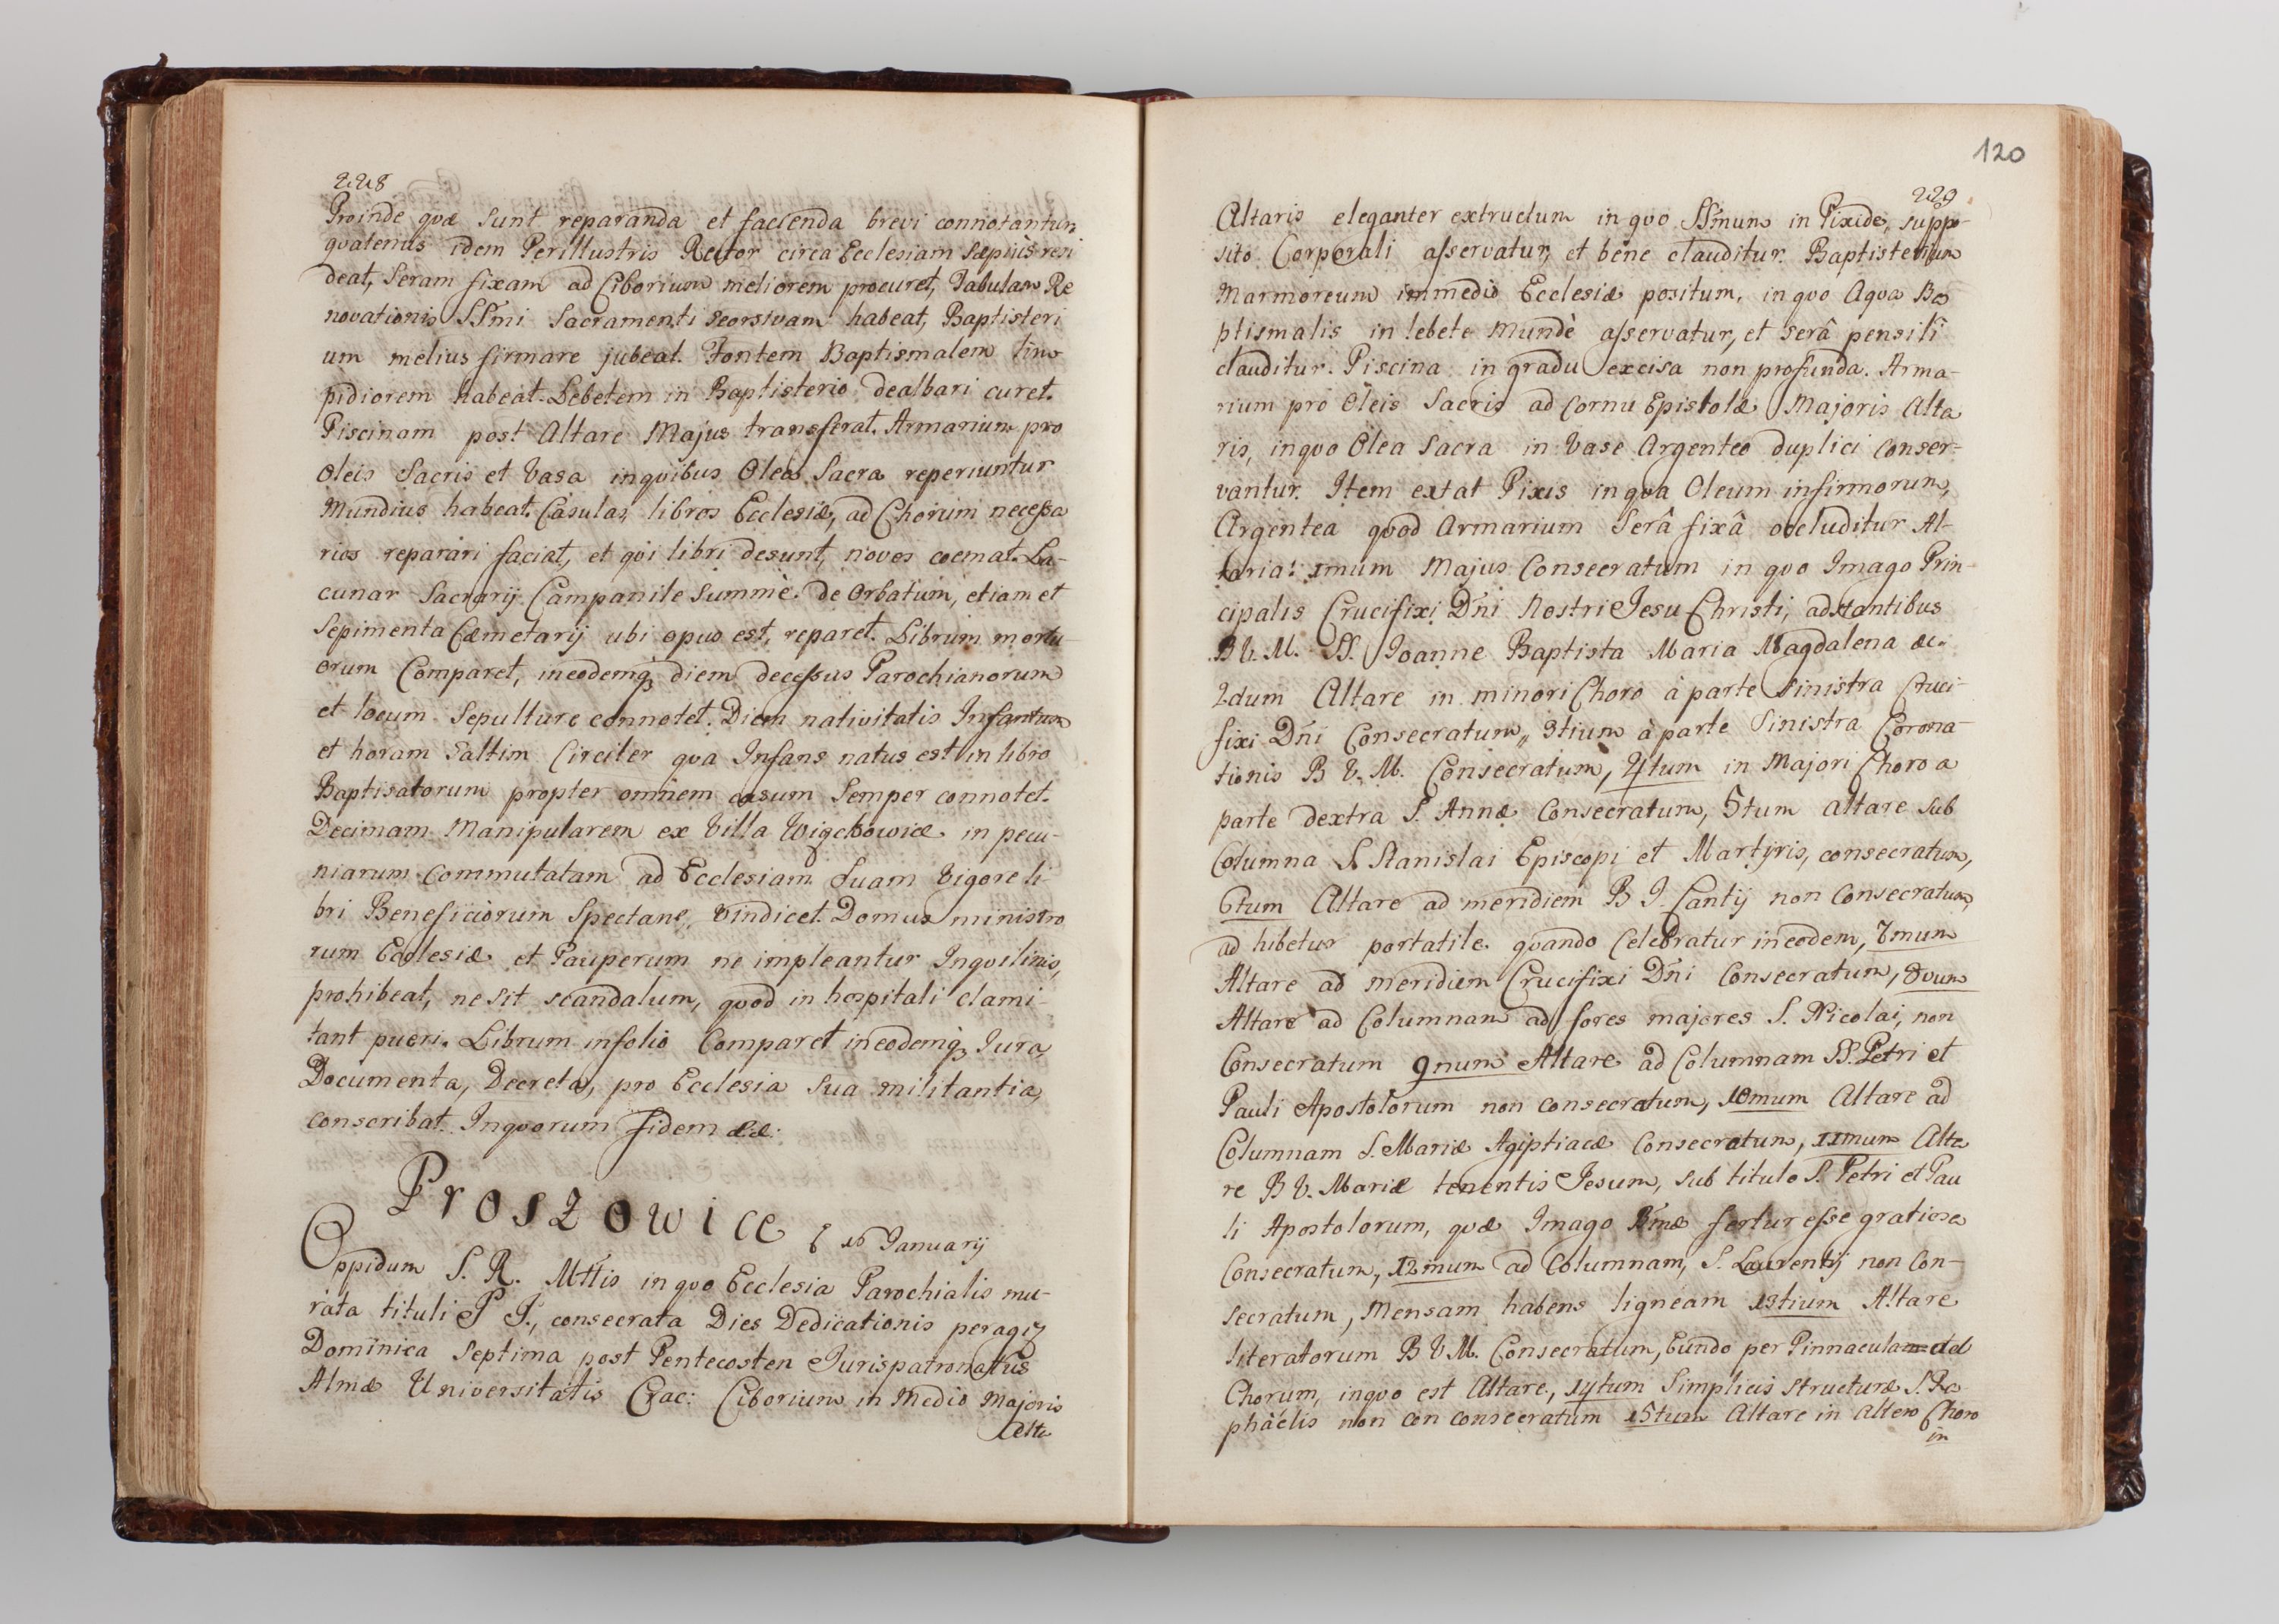 228
Proinde quæ sunt reparanda et facienda brevi connotantur,
quatenus idem Perillustris Rector circa Ecclesiam sæpius resi
deat, Seram fixam ad Ciborium meliorem procuret, Tabulam Re
novationis SSmi Sacramenti seorsivam habeat, Baptisteri
um melius firmare jubeat. Fontem Baptismalem lim
pidiorem habeat. Lebetem in Baptisterio dealbari curet.
Piscinam post Altare Majus transferat. Armarium pro
Oleis Sacris et Vasa in quibus Olea Sacra reperiuntur
Mundius habeat. Casulas, libros Ecclesiæ, ad Chorum necessa
rios reparari faciat, et qui libri desunt, novos coemat. La-
cunar Sacrarij Campanile Summè de orbatum, etiam et
Sepimenta Cæmetarij ubi opus est, reparet. Librum mortu
orum Comparet, in eodemq; diem decessus Parochianorum
et locum Sepulture connotet. Diem nativitatis Infantum
et horam Saltim Circiter qua Infans natus est in libro
Baptisatorum propter omnem casum Semper connotet.
Decimam Manipularem ex Villa in pecu-
niarum Commutatam ad Ecclesiam Suam Vigore li
bri Beneficiorum Spectans, Vindicet. Domus ministro
rum Ecclesiæ et Pauperum ne impleantur Inquilinis,
prohibeat, ne sit scandalum, quod in hospitali clami-
tant pueri. Librum in folio Comparet in eodemq; Jura,
Documenta, Decreta, pro Ecclesia Sua militantia,
conscribat. In quorum fidem &&:
Proszowice 16 Januarij
Oppidum S. R. Mttis in quo Ecclesia Parochialis mu-
rata tituli consecrata Dies Dedicationis
Dominica Septima post Pentecosten Jurispatronatus
Almæ Universitatis Crac: Ciborium in Medio Majoris
Alta
120
229
Altaris eleganter extructum in quo SSmum in Pixide, suppo-
sito Corporali asservatur, et bene clauditur. Baptisterium
Marmoreum in medio Ecclesiæ positum, in quo Aqua Ba
ptismalis in lebete mundè asservatur, et serâ pensili
clauditur. Piscina in gradu excisa non profunda. Arma-
rium pro Oleis Sacris ad Cornu Epistolæ Majoris Alta
ris, in quo Olea Sacra in Vase Argenteo duplici Conser-
vantur. Item extat Pixis in qua Oleum infirmorum,
Argentea quod Armarium Serâ fixâ occluditur Al-
taria: 1mum Majus Consecratum in quo Imago Prin-
cipalis Crucifixi Dni Nostri Jesu Christi, adstantibus
B V. M. SS. Joanne Baptista Maria Magdalena &c.
2dum Altare in minori Choro à parte Sinistra Cruci-
fixi Dni Consecratum, 3tium à parte Sinistra Corona-
tionis B V. M. Consecratum, 4tum in Majori Choro a
parte dextra S. Annæ Consecratum, 5tum altare sub
Columna S Stanislai Episcopi et Martyris, consecratum,
6tum Altare ad meridiem B J. Cantij non Consecratum,
ad hibetur portatile quando Celebratur in eodem, 7mum
Altare ad meridiem Crucifixi Dni Consecratum, 8vum
Altare ad Columnam ad fores majores S. Nicolai, non
Consecratum 9num Altare ad Columnam SS. Petri et
Pauli Apostolorum non consecratum, 10mum Altare ad
Columnam S. Mariæ Agiptiacæ Consecratum, 11mum Alta
re B V. Mariæ tenentis Jesum, sub titulo S. Petri et Pau
li Apostolorum, quæ Imago fertur esse gratiosa
Consecratum, 12mum ad Columnam, S. Laurentij non Con-
secratum, Mensam habens ligneam 13tium Altare
literatorum B V M. Consecratum, Eundo per Pinnaculam ad
Chorum, in quo est Altare, 14tum Simplicis structuræ S. Ra
phaelis non con consecratum 15tum Altare in altero Choro
in